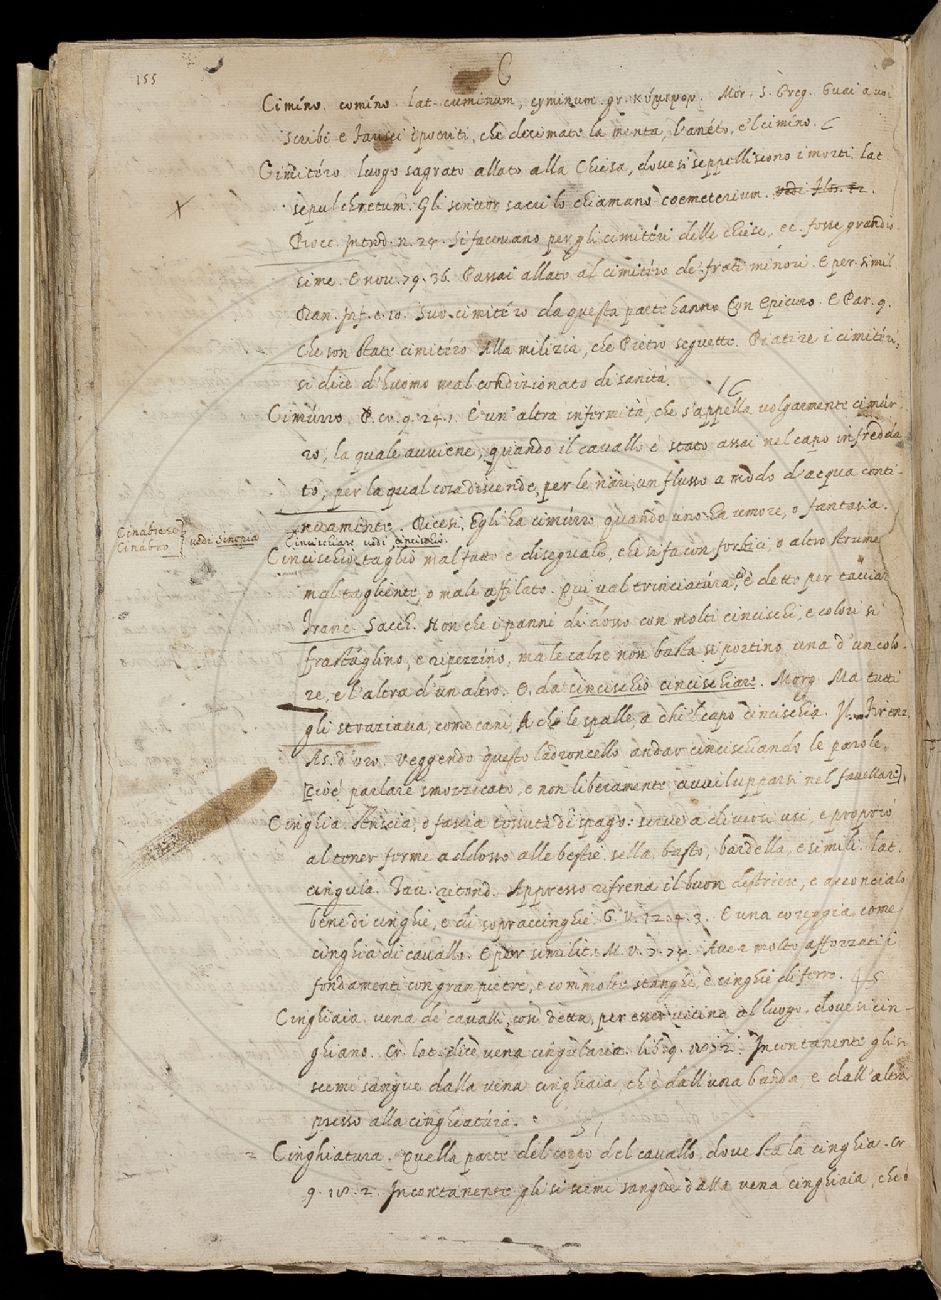 155
C
Cimíno. comíno. lat. cuminum, cyminum. gr. κύμινον. Mor. S. Greg. Guai a voi
scribi e farisei ipocriti, che decimate la menta, l'anéto, e 'l cimíno.
Cimitéro luogo sagrato allato alla Chiesa, dove si seppelliscono i morti. lat.
sepulchretum. Gli scrittor sacri lo chiamano coemeterium.
Bocc. Introd. n. 24. Si facevano per gli cimitéri delle chiese, ec. fosse grandis-
sime. E nov. 79. 36. Passai allato al cimitéro de' frati minori. E per simil.
Dan. Inf. c. 10. Suo cimitéro da questa parte hanno Con Epicuro. E Par. 9.
Che son state cimitéro Alla milizia, che Pietro seguette. Piatire i cimitéri,
si dice d'huomo mal condizionato di sanità.
Cimúrro. P. cr. 9. 24. 1. È un'altra infermità, che s'appella volgarmente cimúr-
ro, la quale avviene, quando il cavallo è stato assai nel capo infredda
to, per la qual cosa discende per le nari un flusso a modo d'acqua conti-
nuamente. Dicesi, Egli ha cimúrro, quando uno ha umore, o fantasia.
Cinabrese
Cinabro
vedi Sinopia
Cincischiare vedi cincischio.
Cincischio. taglio mal fatto e diseguale, che si fa con forbici, o altro strume
mal tagliente, o male affilato. Qui val trinciatúra, e detto per tacciar
Franc. Sacch. Non che i panni di dosso con molti cincischi, e colori si
frastáglino, e ripézzino, ma le calze non basta si portino una d'un colo-
re, e l'altra d'un altro. E da cincischio cincischiare. Morg. Ma tutti
gli straziava, come cani, A chi le spalle, a chi 'l capo cincischia. Firenz.
As. d'oro. Veggendo questo ladroncello andar cincischiando le parole,
cioè parlare smozzicato, e non liberamente avvilupparsi nel favellare.
Cinghia. striscia, o fascia tessuta di spago: serve a diversi usi, e proprio
al tener ferme addosso alle bestie, sella, basto, bardella, e simili. lat.
cingula. Tav. ritond. Appresso rifrena il buon destriere, e acconcialo
bene di cinghie, e di sopraccinghie. G. V. 12. 4. 3. E una coreggia come
cinghia di cavallo. E per similit. M. V. 3. 74. Avea molto afforzati i
fondamenti con gran pietre, e con molte stanghe, e cinghie di ferro.
Cinghiaia. vena de' cavalli, così detta, per esser vicina al luogo, dove si cin-
ghiano. Cr. lat. dice vena cingularia. lib. 9. 18. 2. Incontanente gli si
scemi sangue dalla vena cinghiaia, ch'è dall'una banda, e dall'altra
presso alla cinghiatúra.
Cinghiatura. Quella parte del corpo del cavallo, dove sta la cinghia. Cr.
9. 18. 2. Incontanente gli si scemi sangue dalla vena cinghiaia, che è